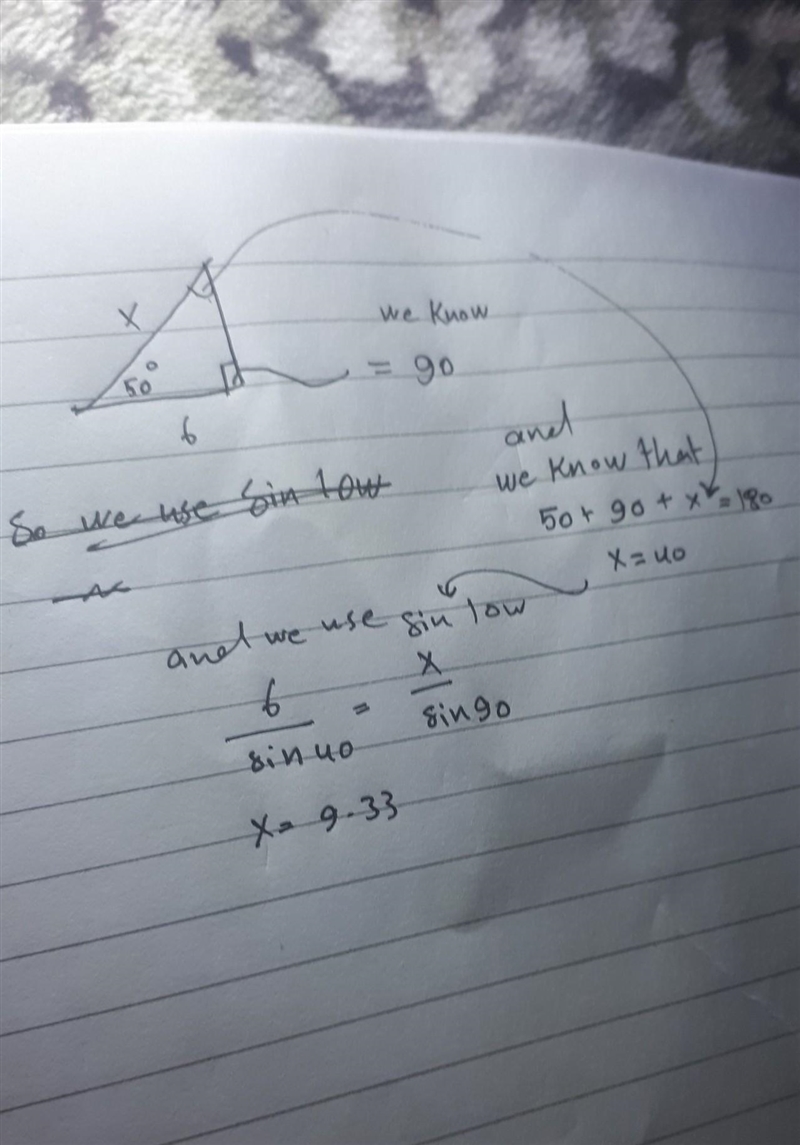 X
50°
6
we know
= 90
and
we know that
50 + 90 + x = 180
x = 40
So we use sin low
and we use sin low
6 / sin 40 = x / sin 90
x = 9.33